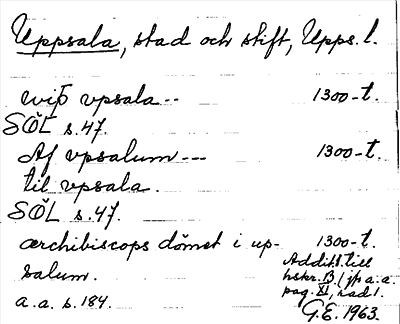 Uppsala, stad och stift, Upps. l.
wiþ vpsala -- 1300-t.
SÖL s. 47.
Af vpsalum --- 1300-t.
til vpsala.
SÖL s. 47.
ærchibiscops dömet i up- 1300-t.
salum. Addit. 1 till
hskr. B (jp a. a.
a. a. s. 184. pag. XI, rad 1.
G.E. 1963.